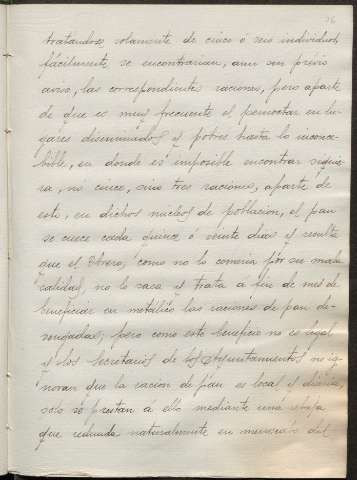 36
tratandose solamente de cinco ó seis individuos,
fácilmente se encontrarian, aun sin previo
aviso, las correspondientes raciones, pero aparte
de que es muy frecuente el pernoctar en lu-
gares diseminados y pobres hasta lo inconce-
bible, en donde es imposible encontrar siquie-
ra, ni cinco, sino tres raciones, aparte de
esto, en dichos nucleos de poblacion, el pan
se cuece cada quince ó veinte dias y resulta
que el obrero, como no lo comeria por su mala
calidad, no lo saca y trata á fin de mes de
beneficiar en metálico las raciones de pan de-
vengadas; pero como este beneficio no es legal
y los secretarios de los Ayuntamientos no ig-
noran que la racion de pan es local y diaria,
solo se prestan á ello mediante una rebaja
que redunda naturalmente en menoscabo del